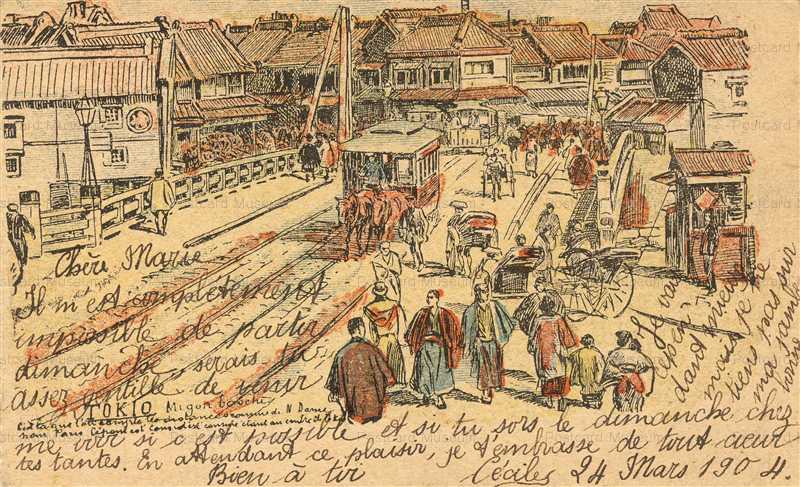 Chère Marie
Il m'est complètement
impossible de partir
dimanche, serais tu
assez gentille de venir
TOKIO Migon baschi
me voir si c'est possible et si tu sors le dimanche chez
tes tantes. En attendant ce plaisir, je t'embrasse de tout cœur
Bien à toi Cécile 24 Mars 1904.
Je vais
dans
mais je ne
tiens pas sur
ma jambe